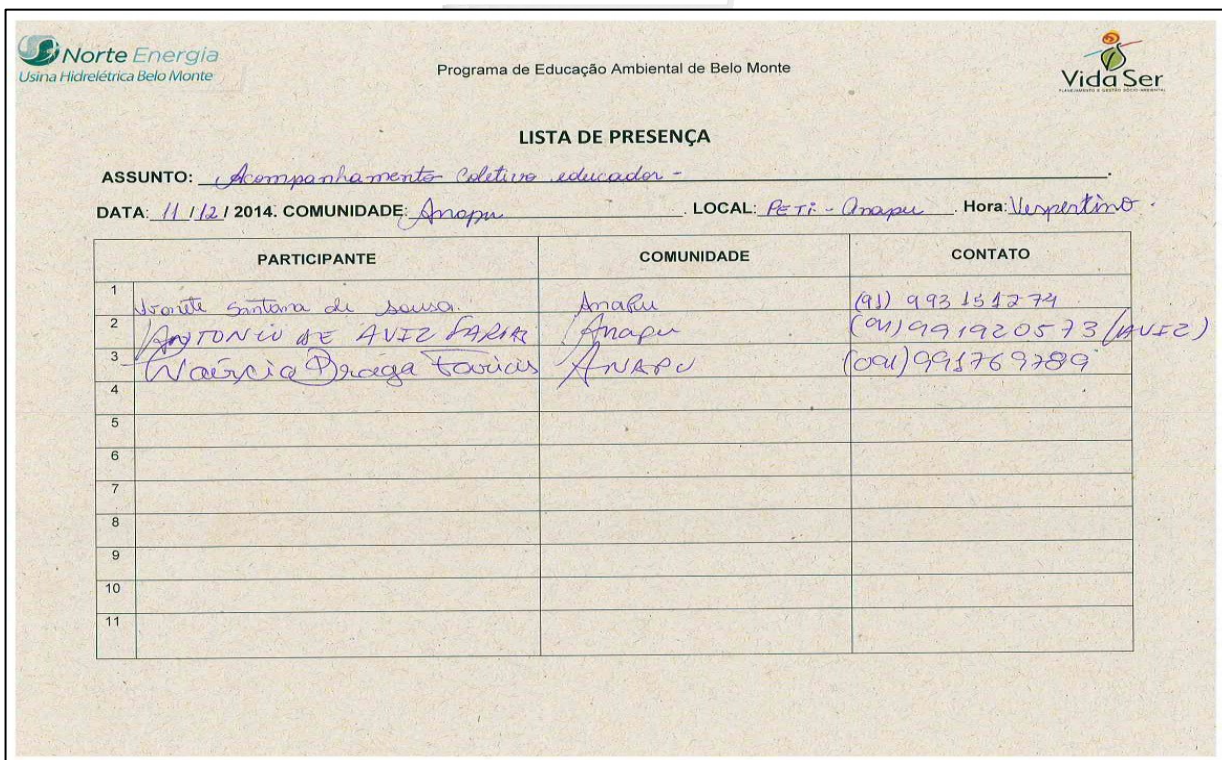 Norte Energia
Usina Hidrelétrica Belo Monte
Programa de Educação Ambiental de Belo Monte
Vida Ser
LISTA DE PRESENÇA
ASSUNTO: Acompanhamento Coletivo educador -
DATA: 11/12/2014. COMUNIDADE: Anapu. LOCAL: PETi - Anapu. Hora: Vespertino.
PARTICIPANTE COMUNIDADE CONTATO
1 Santana de Sousa. Anapu (91) 993151274
2 ANTONIO DE AVIZ FARIAS Anapu (091) 991920573 (AVIZ)
3 Braga Farias ANAPU (091) 991769789
4
5
6
7
8
9
10
11